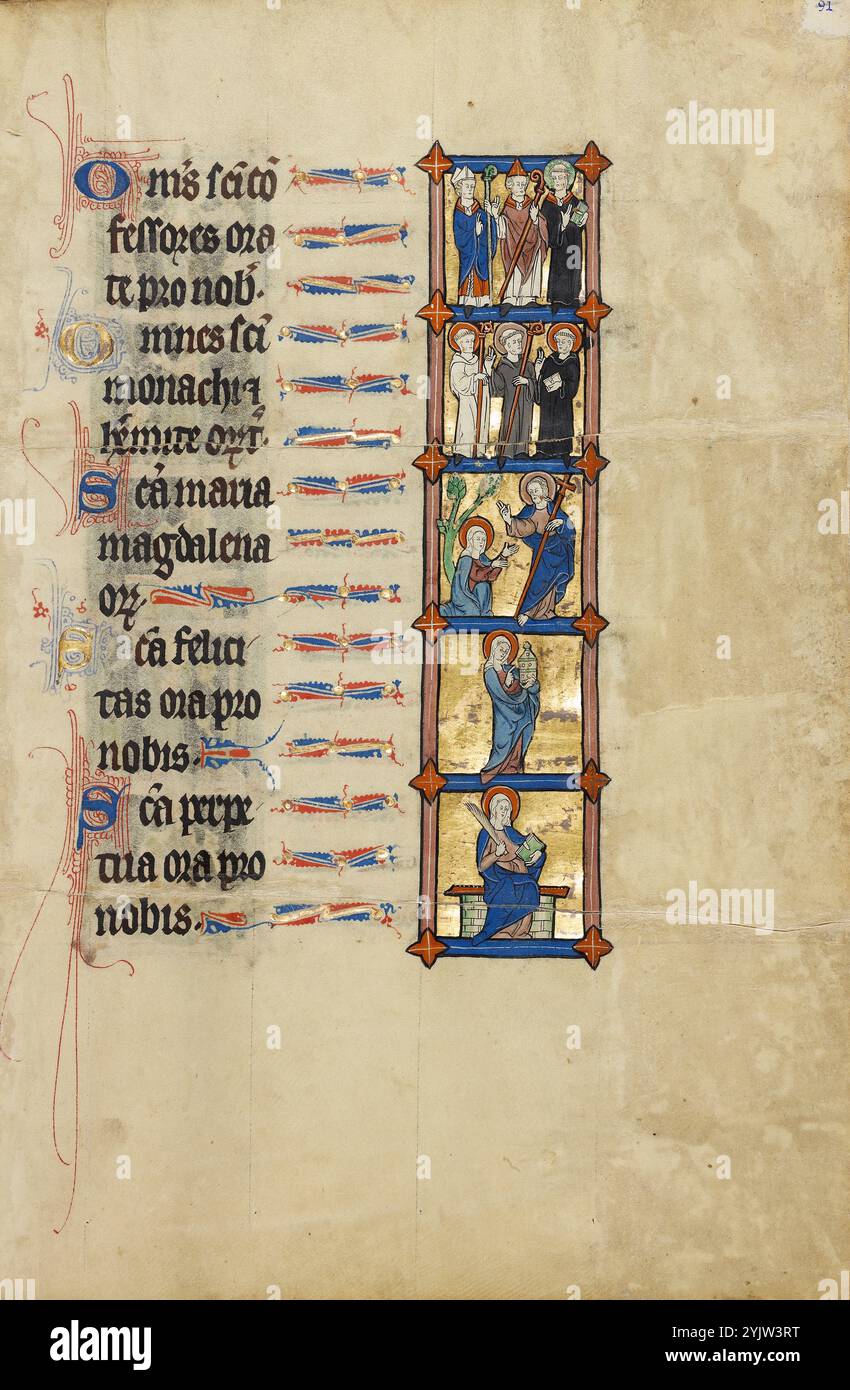 91
Om̄s sc̄i cō
fessores ora
te pro nob̄.
Omnes sc̄i
monachi ⁊
h̄emite or̄t.
Sc̄a maria
magdalena
or̄.
Sc̄a felici
tas ora pro
nobis.
Sc̄a perpe
tua ora pro
nobis.
alamy
Image ID: 2YJW3RT
www.alamy.com